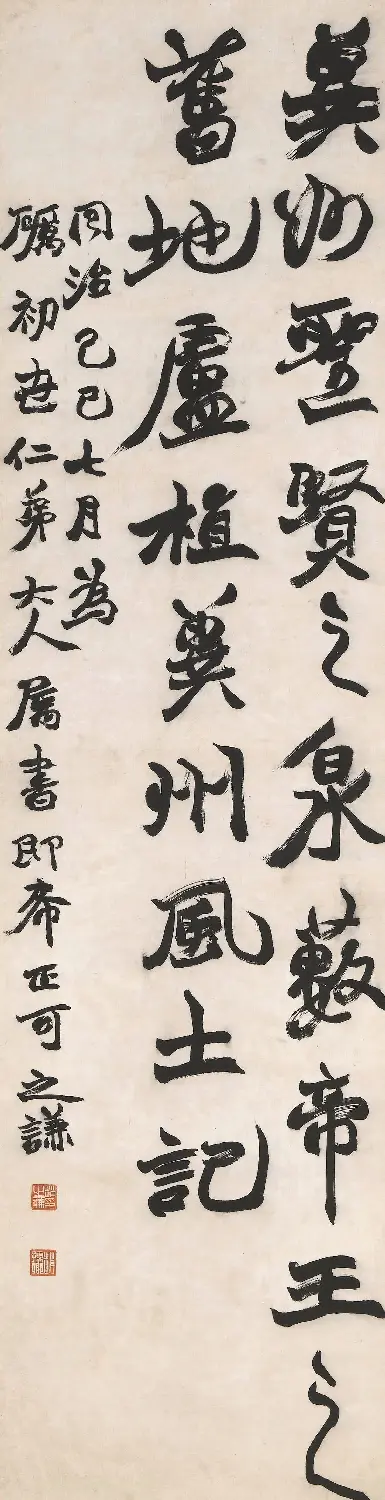 冀州聖賢之泉藪帝王之
舊地盧植冀州風土記
同治己巳七月為
礪初世仁弟大人屬書即希正可之謙